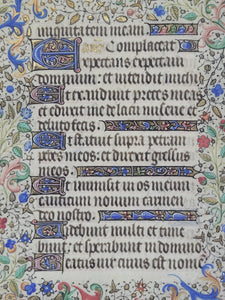 iniquitatem meam
Complaceat
Expectans expectavi
dominum: et intendit michi
Et exaudivit preces meas
et eduxit me de lacu miserie et
de luto fecis.
Et statuit supra petram
pedes meos: et direxit gressus
meos.
Et inmisit in os meum
canticum novum carmen
deo nostro.
Videbunt multi et time
bunt: et sperabunt in domino.
Beatus vir cuius est nomen